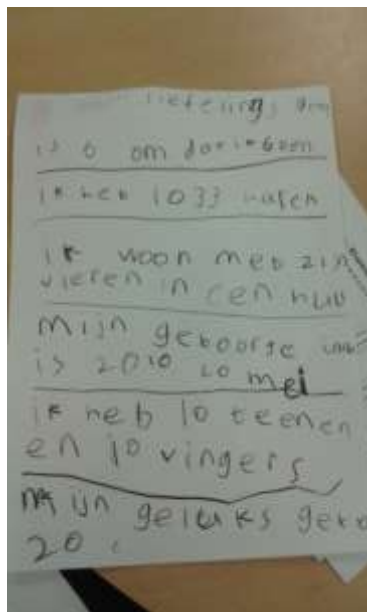 lievelings
is 6 om
ik heb 1033
ik woon met zijn
vieren in een huis
mijn geboorte
is 2010 20 mei
ik heb 10 teenen
en 10 vingers
mijn geluks geta
20.